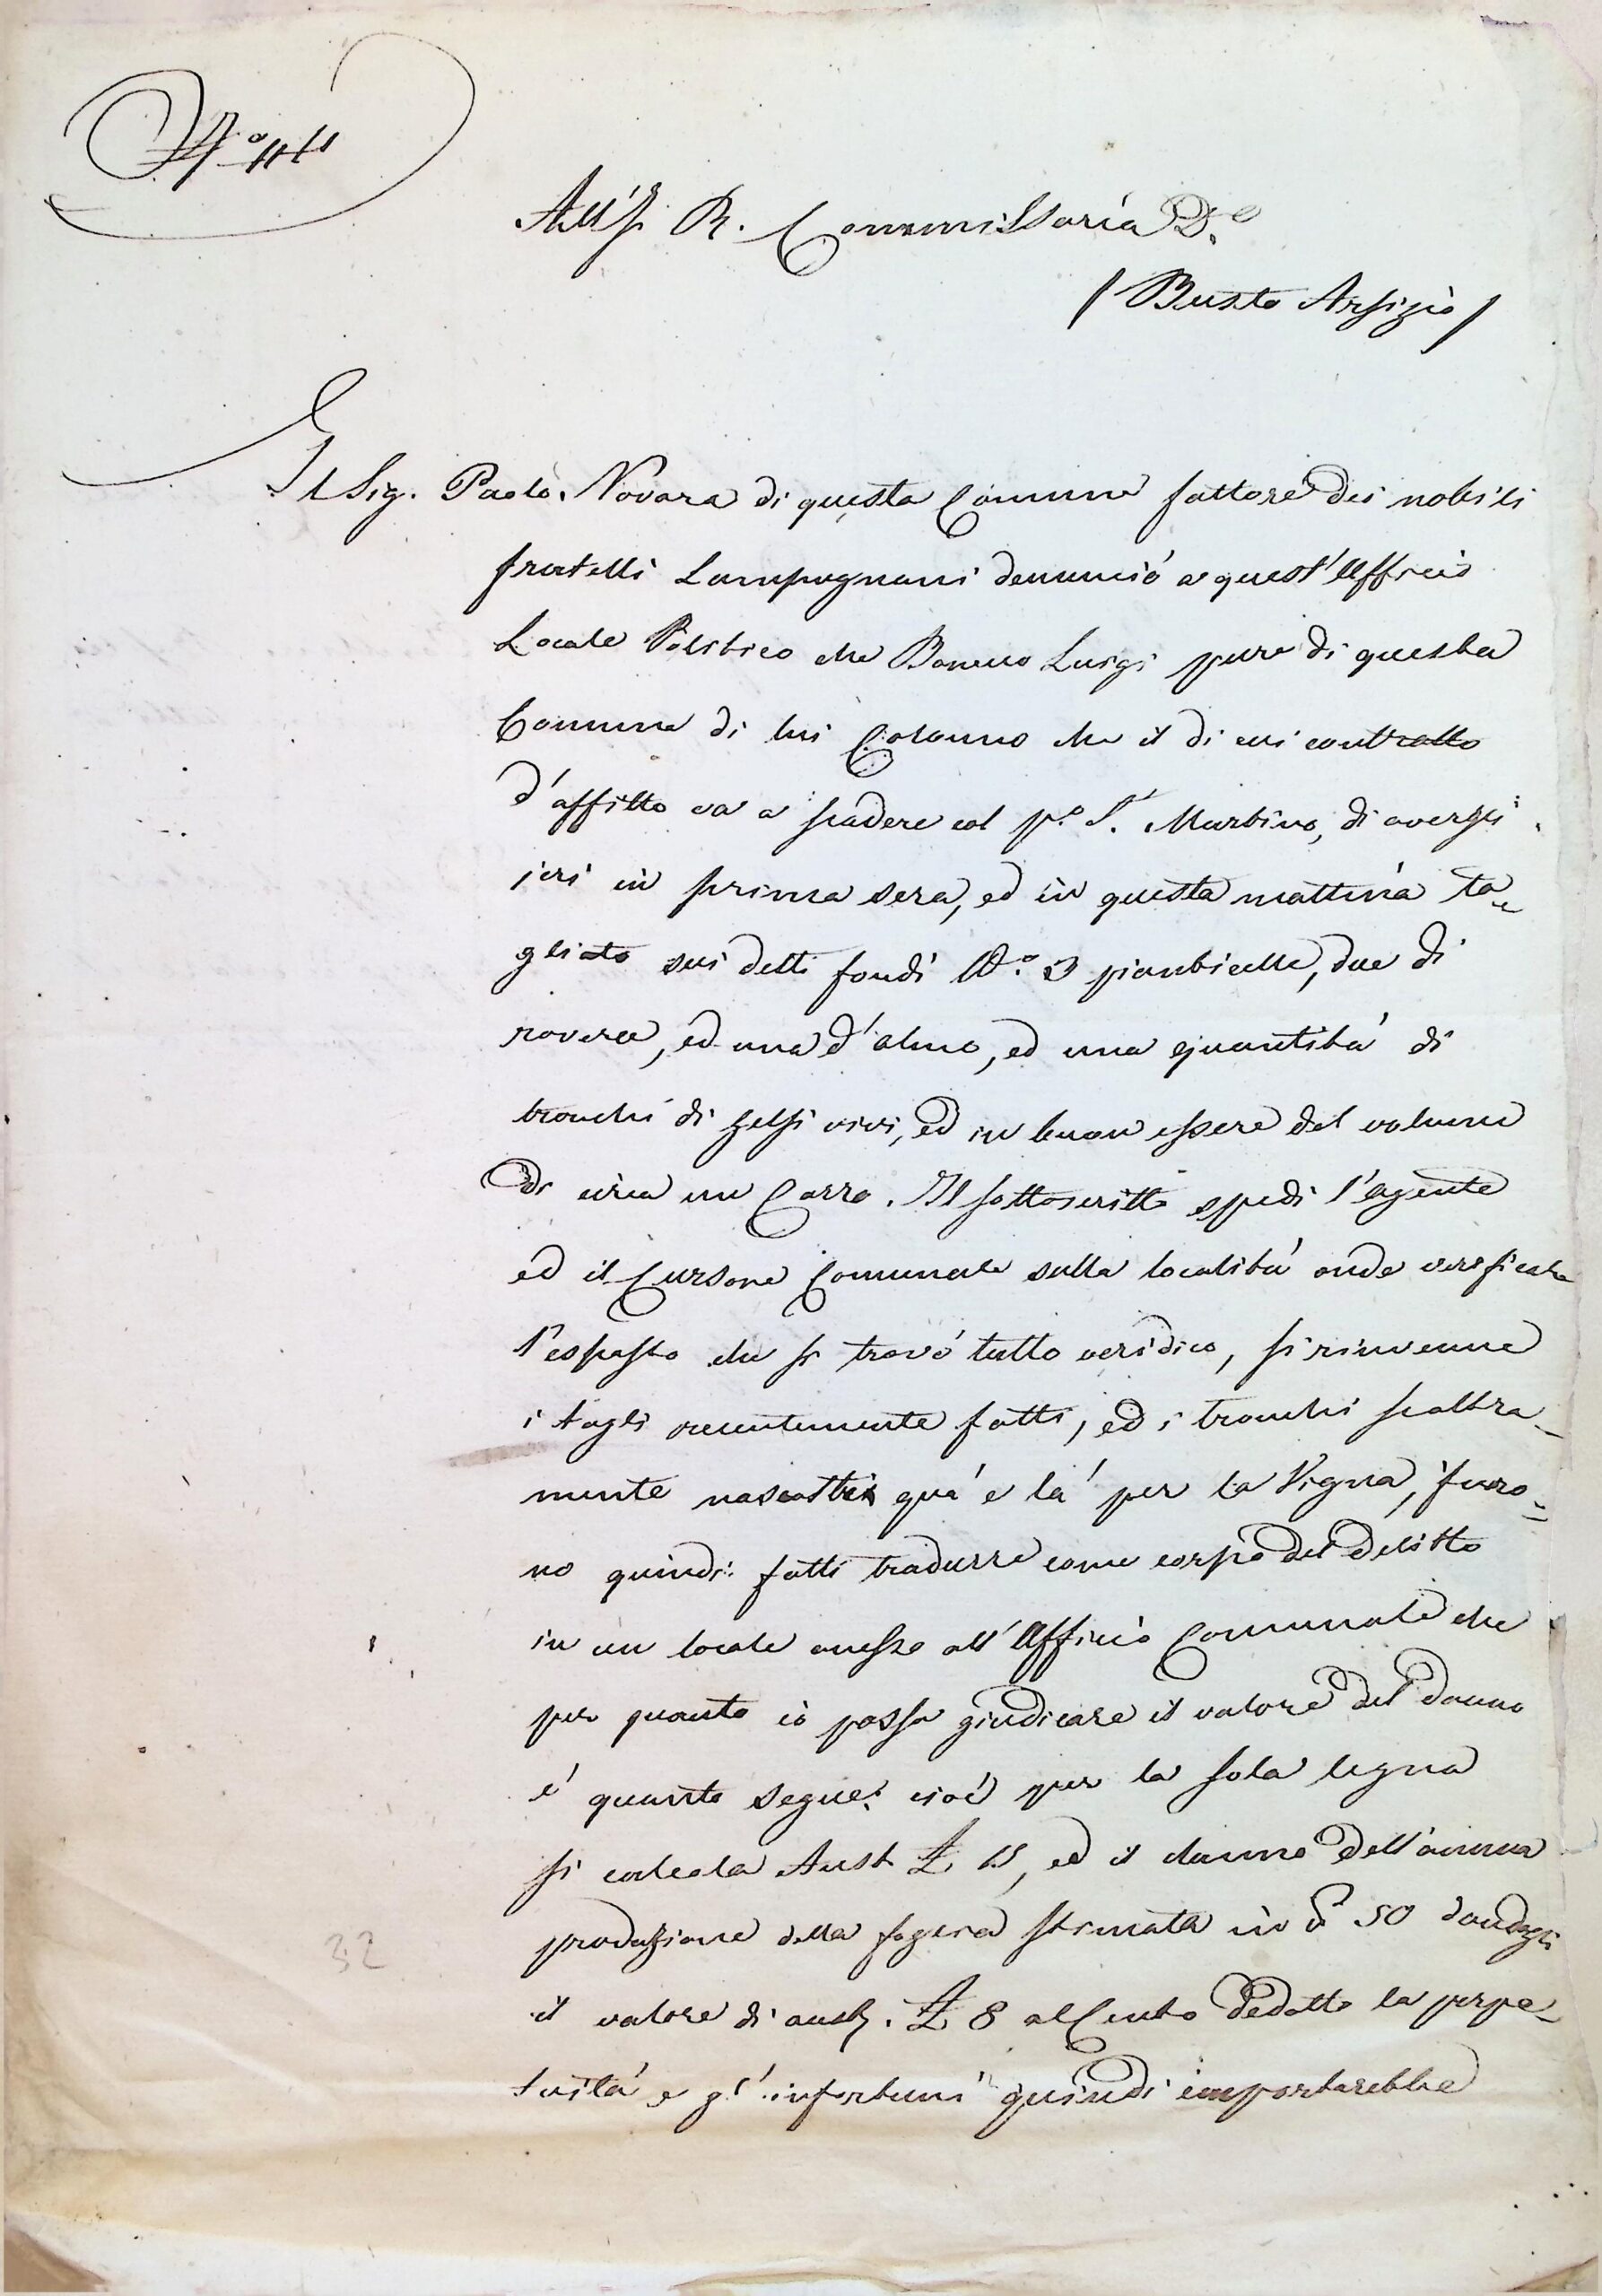 All'I. R. Commissaria D.e
/ Busto Arsizio /
Il Sig. Paolo Novara di questa Comune fattore dei nobili
fratelli Lampugnani denunciò a quest'Ufficio
Locale Politico che Luigi pure di questa
Comune di lui Colonno che il di cui contratto
d'affitto va a scadere col p.o S. Martino, di avergli
jeri in prima sera, ed in questa mattina ta=
gliato sui detti fondi N.o 3 pianticelle, due di
rovere, ed una d'olmo, ed una quantità di
tronchi di gelsi vivi, ed in buon essere del volume
di circa un Carro. Il sottoscritto spedì l'agente
ed il Cursore Comunale sulla località onde verificare
l'esposto che si trovò tutto veridico, si rinvenne
i tagli recentemente fatti, ed i tronchi scaltra=
mente nascosti quà e là per la Vigna, furo=
no quindi fatti tradurre come corpo del delitto
in un locale anesso all'Ufficio Comunale che
per quanto io possa giudicare il valore del danno
è quanto segue: cioè per la sola legna
si calcola Aust. £ 15, ed il danno dell'annua
produzione della foglia stimata in 50 dandogli
il valore di aust. £ 8 al Cento dedotto la perpe=
tuità e gl'infortuni quindi importarebbe
32